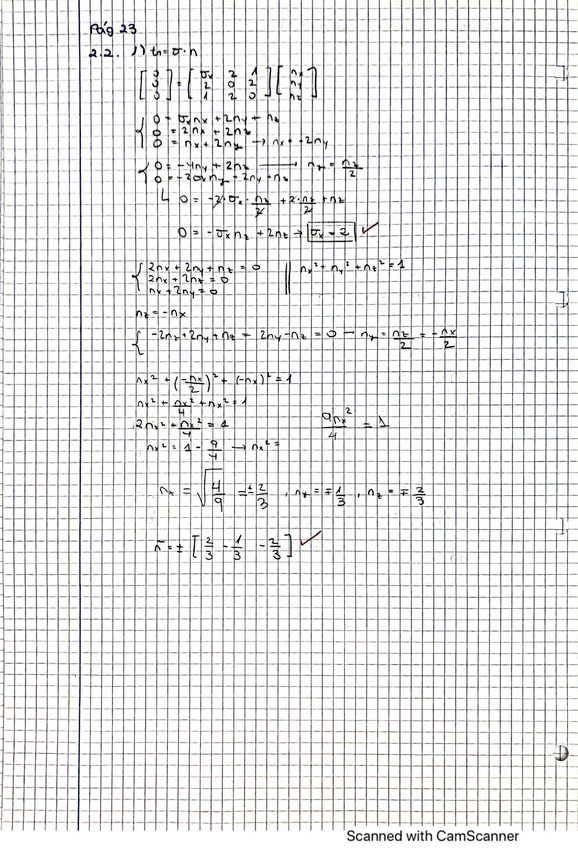 Pág 23
2.2. 1) tn = σ · n
[0 0 0] = [σx 2 1; 2 0 2; 1 2 0] [nx ny nz]
{ 0 = σx nx + 2ny + nz
0 = 2nx + 2nz
0 = nx + 2ny → nx = -2ny
{ 0 = -4ny + 2nz → ny = nz/2
0 = -2σx ny + 2ny + nz
↳ 0 = -2 · σx · nz/2 + 2 · nz/2 + nz
0 = -σx nz + 2nz → σx = 2 ✓
{ 2nx + 2ny + nz = 0 || nx² + ny² + nz² = 1
2nx + 2nz = 0
nx + 2ny = 0
nz = -nx
{ -2nz + 2ny + nz = 2ny - nz = 0 → ny = nz/2 = -nx/2
nx² + (-nx/2)² + (-nx)² = 1
nx² + nx²/4 + nx² = 1
2nx² + nx²/4 = 1 9nx²/4 = 1
nx² = 1 - 9/4 → nx² =
nx = √4/9 = ±2/3 , ny = ∓1/3 , nz = ∓2/3
n̄ = ± [2/3 -1/3 -2/3] ✓
Scanned with CamScanner